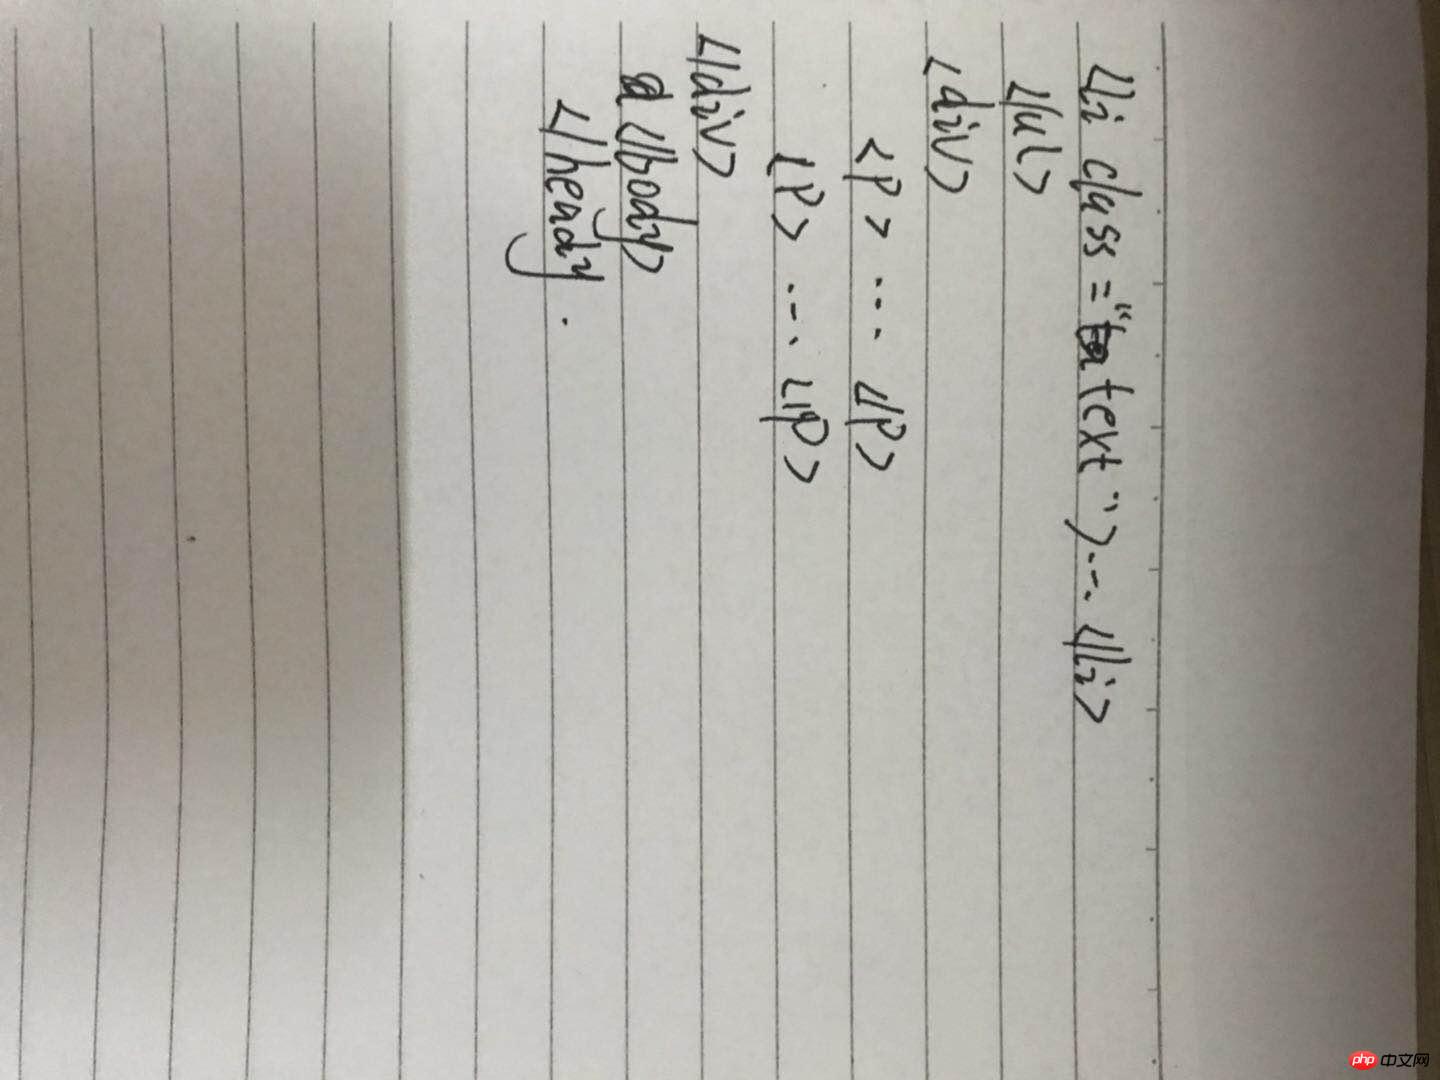 <li class="text">...</li>
</ul>
<div>
<p>...</p>
<p>...</p>
</div>
</body>
</heady.
php 中文网